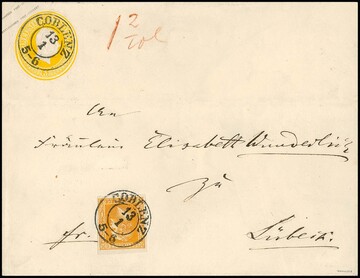 COBLENZ
13
1
5-6
1 2
An
Fräulein Elisabeth Wunderlich
zu
COBLENZ
13
1
5-6
fr. Lübeck.